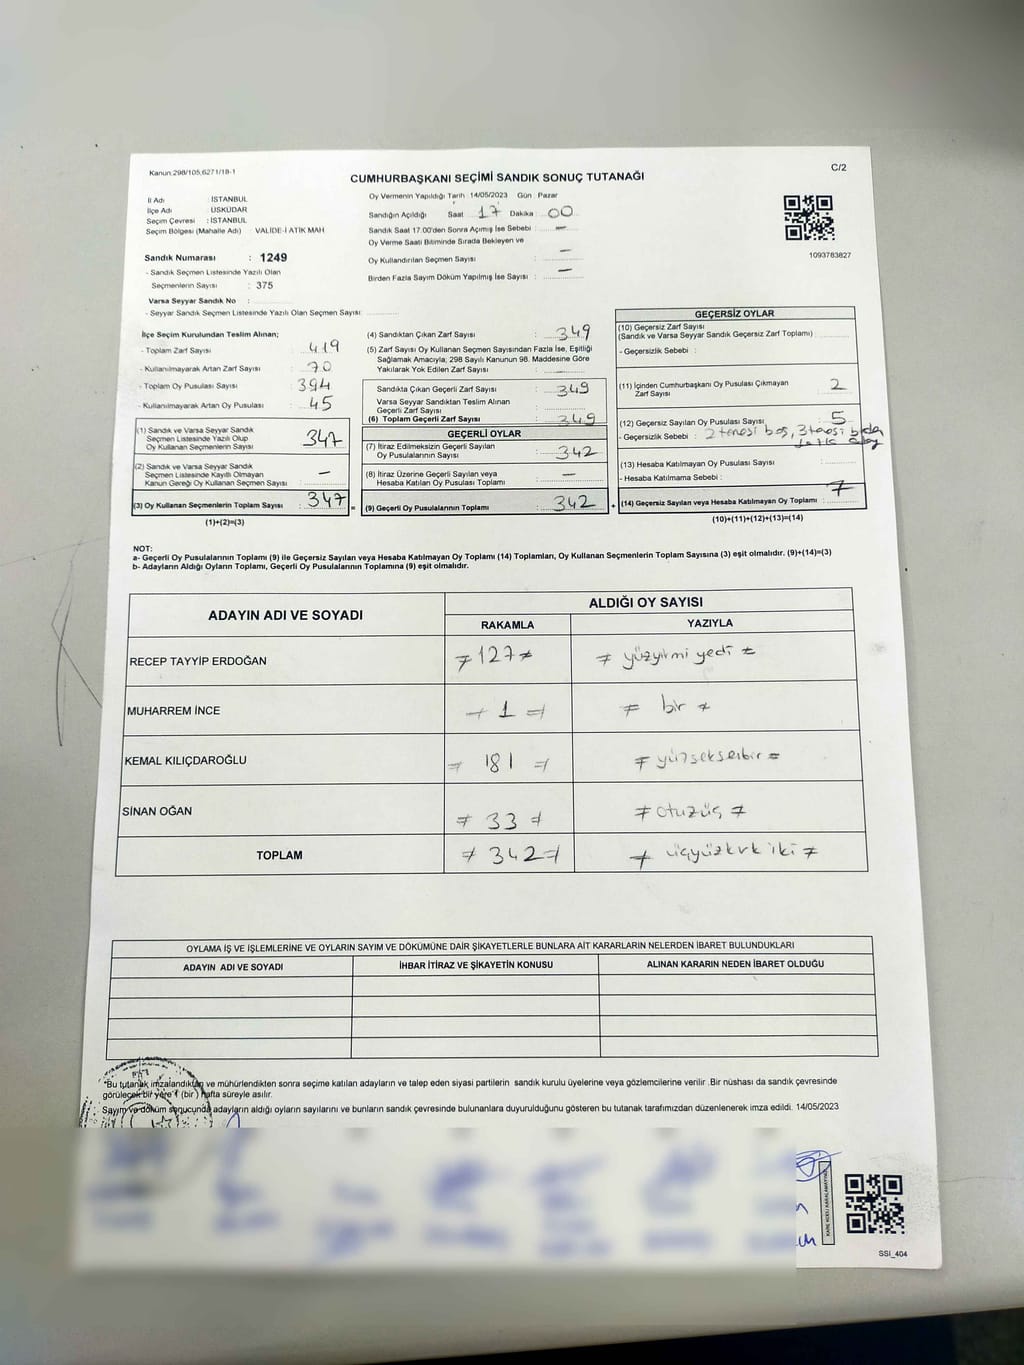 Kanun.298/105,6271/18-1
C/2
CUMHURBAŞKANI SEÇİMİ SANDIK SONUÇ TUTANAĞI
İl Adı : İSTANBUL
İlçe Adı : ÜSKÜDAR
Seçim Çevresi : İSTANBUL
Seçim Bölgesi (Mahalle Adı) VALİDE-İ ATİK MAH
Sandık Numarası : 1249
- Sandık Seçmen Listesinde Yazılı Olan
Seçmenlerin Sayısı : 375
Varsa Seyyar Sandık No :
- Seyyar Sandık Seçmen Listesinde Yazılı Olan Seçmen Sayısı:
Oy Vermenin Yapıldığı Tarih 14/05/2023 Gün Pazar
Sandığın Açıldığı Saat 17 Dakika 00
Sandık Saat 17.00'den Sonra Açımış İse Sebebi : —
Oy Verme Saati Bitiminde Sırada Bekleyen ve
Oy Kullandırılan Seçmen Sayısı : —
Birden Fazla Sayım Döküm Yapılmış İse Sayısı : —
1093783827
İlçe Seçim Kurulundan Teslim Alınan;
- Toplam Zarf Sayısı : 419
- Kullanılmayarak Artan Zarf Sayısı : 70
- Toplam Oy Pusulası Sayısı : 394
- Kullanılmayarak Artan Oy Pusulası : 45
(1) Sandık ve Varsa Seyyar Sandık
Seçmen Listesinde Yazılı Olup
Oy Kullanan Seçmenlerin Sayısı : 347
(2) Sandık ve Varsa Seyyar Sandık
Seçmen Listesinde Kayıtlı Olmayan
Kanun Gereği Oy Kullanan Seçmen Sayısı : —
(3) Oy Kullanan Seçmenlerin Toplam Sayısı : 347 =
(1)+(2)=(3)
(4) Sandıktan Çıkan Zarf Sayısı : 349
(5) Zarf Sayısı Oy Kullanan Seçmen Sayısından Fazla İse, Eşitliği
Sağlamak Amacıyla; 298 Sayılı Kanunun 98. Maddesine Göre
Yakılarak Yok Edilen Zarf Sayısı : —
Sandıkta Çıkan Geçerli Zarf Sayısı : 349
Varsa Seyyar Sandıktan Teslim Alınan
Geçerli Zarf Sayısı :
(6) Toplam Geçerli Zarf Sayısı : 349
GEÇERLİ OYLAR
(7) İtiraz Edilmeksizin Geçerli Sayılan
Oy Pusulalarının Sayısı : 342
(8) İtiraz Üzerine Geçerli Sayılan veya
Hesaba Katılan Oy Pusulası Toplamı : —
(9) Geçerli Oy Pusulalarının Toplamı : 342 +
GEÇERSİZ OYLAR
(10) Geçersiz Zarf Sayısı
(Sandık ve Varsa Seyyar Sandık Geçersiz Zarf Toplamı)
- Geçersizlik Sebebi :
(11) İçinden Cumhurbaşkanı Oy Pusulası Çıkmayan
Zarf Sayısı : 2
(12) Geçersiz Sayılan Oy Pusulası Sayısı : 5
- Geçersizlik Sebebi : 2 tanesi boş, 3 tanesi
(13) Hesaba Katılmayan Oy Pusulası Sayısı :
- Hesaba Katılmama Sebebi :
(14) Geçersiz Sayılan veya Hesaba Katılmayan Oy Toplamı : 7
(10)+(11)+(12)+(13)=(14)
NOT:
a- Geçerli Oy Pusulalarının Toplamı (9) ile Geçersiz Sayılan veya Hesaba Katılmayan Oy Toplamı (14) Toplamları, Oy Kullanan Seçmenlerin Toplam Sayısına (3) eşit olmalıdır. (9)+(14)=(3)
b- Adayların Aldığı Oyların Toplamı, Geçerli Oy Pusulalarının Toplamına (9) eşit olmalıdır.
ADAYIN ADI VE SOYADI
ALDIĞI OY SAYISI
RAKAMLA YAZIYLA
RECEP TAYYİP ERDOĞAN 127 yüzyirmi yedi
MUHARREM İNCE 1 bir
KEMAL KILIÇDAROĞLU 181 yüzseksenbir
SİNAN OĞAN 33 otuzüç
TOPLAM 342 üçyüzkırk iki
OYLAMA İŞ VE İŞLEMLERİNE VE OYLARIN SAYIM VE DÖKÜMÜNE DAİR ŞİKAYETLERLE BUNLARA AİT KARARLARIN NELERDEN İBARET BULUNDUKLARI
ADAYIN ADI VE SOYADI İHBAR İTİRAZ VE ŞİKAYETİN KONUSU ALINAN KARARIN NEDEN İBARET OLDUĞU
"Bu tutanak imzalandıktan ve mühürlendikten sonra seçime katılan adayların ve talep eden siyasi partilerin sandık kurulu üyelerine veya gözlemcilerine verilir .Bir nüshası da sandık çevresinde
görülecek bir yere 1 (bir ) hafta süreyle asılır.
Sayım ve döküm sonucunda adayların aldığı oyların sayılarını ve bunların sandık çevresinde bulunanlara duyurulduğunu gösteren bu tutanak tarafımızdan düzenlenerek imza edildi. 14/05/2023
SSİ_404